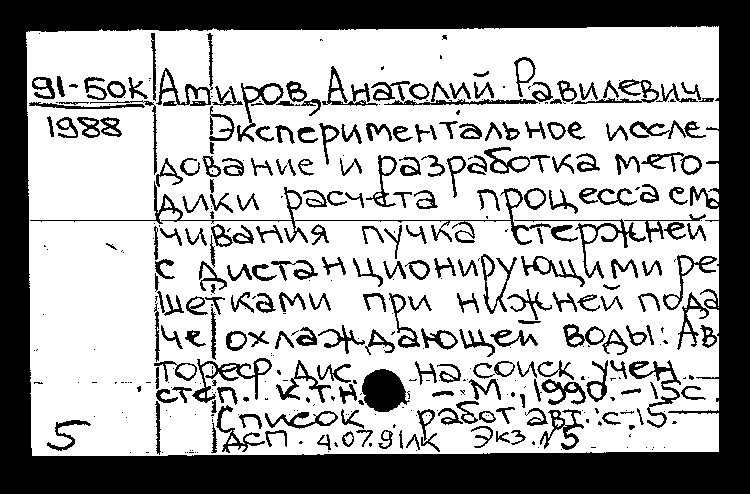 91-50к Амиров, Анатолий Равилевич
1988 Экспериментальное иссле-
дование и разработка мето-
дики расчета процесса сма
чивания пучка стержней
с дистанционирующими ре-
шетками при нижней пода
че охлаждающей воды: Ав-
тореф. дис. на соиск. учен.
степ. к.т.н. – М., 1990. – 15с.
Список работ авт.: с.15.
5 ДСП. 4.07.91ЛК Экз. №5